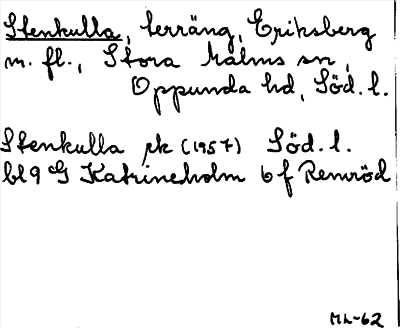 Stenkulla, terräng, Eriksberg
m. fl., Stora Malms sn,
Oppunda hd, Söd. l.
Stenkulla ek (1957) Söd. l.
bl 9 G Katrineholm 6 f Remröd
ML-62